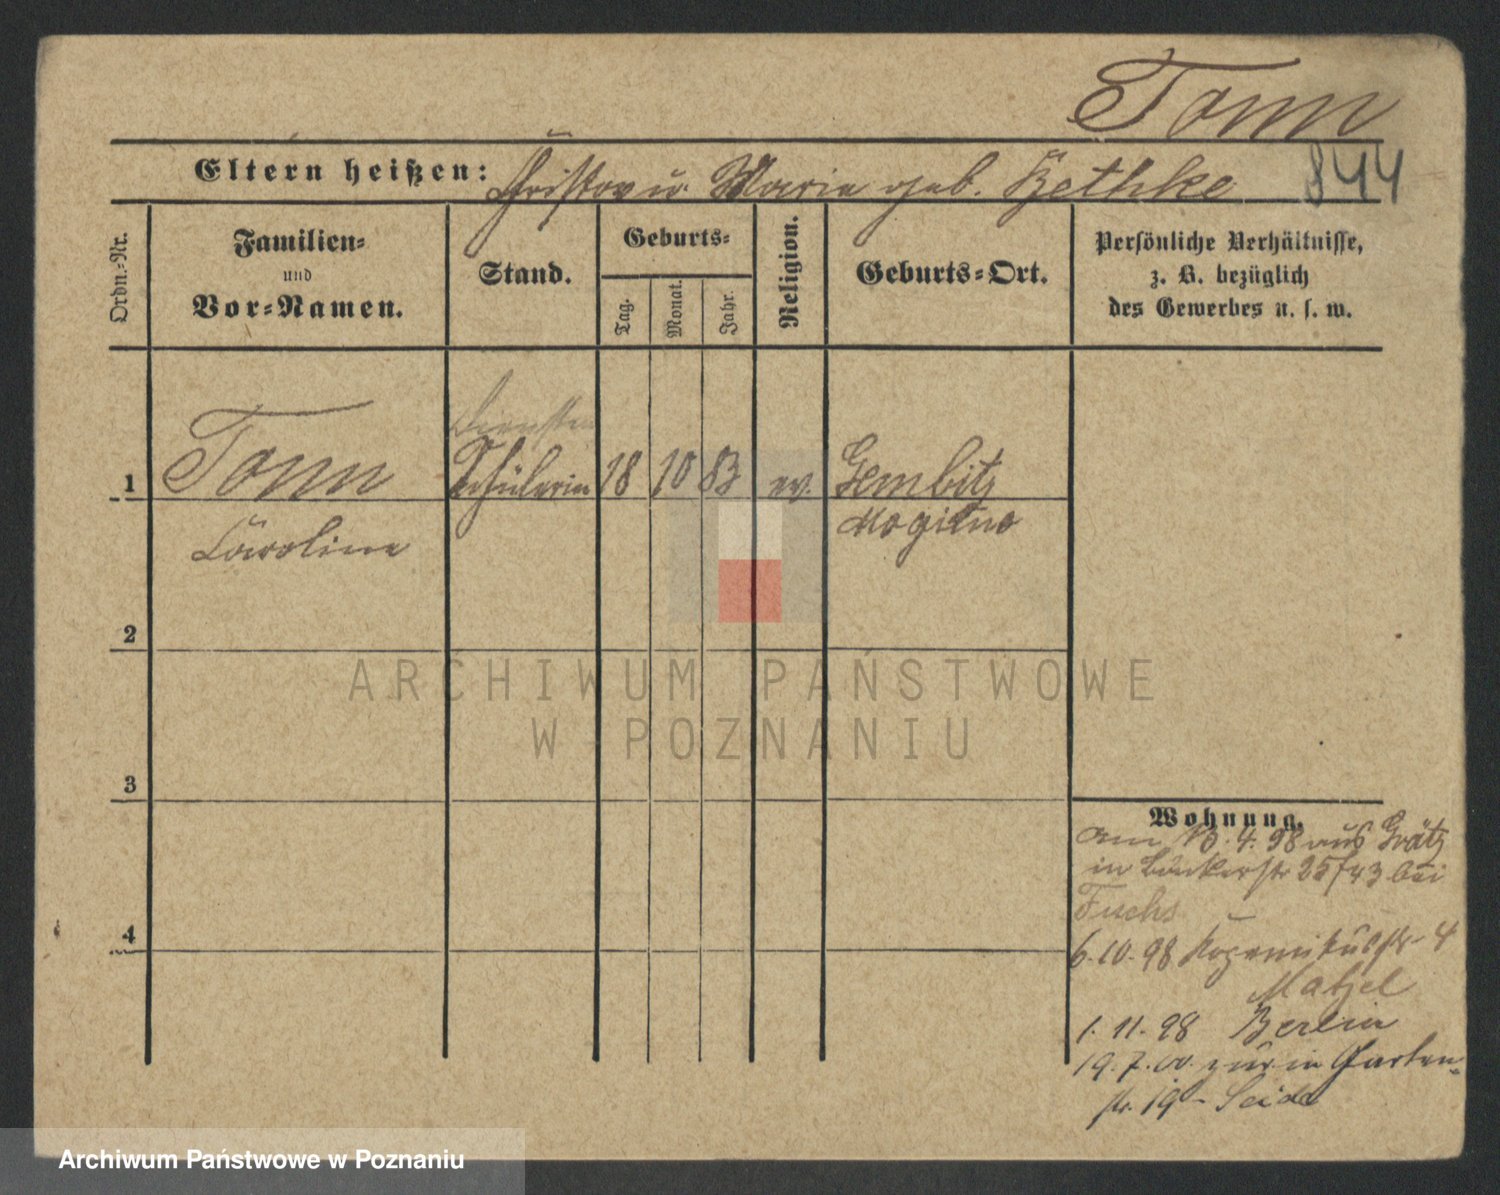 Tonn
844
Eltern heißen: Christov u Marie geb. Bethke
Ordn.-Nr.
Familien-
und
Vor-Namen.
Stand.
Geburts-
Tag.
Monat.
Jahr.
Religion.
Geburts-Ort.
Persönliche Verhältnisse,
z. B. bezüglich
des Gewerbes u. s. w.
1 Tonn Schülerin 18 10 83 ev. Gembitz
Caroline Mogilno
2
3
4
Wohnung.
am 13.4.98 aus Grätz
in Bäckerstr 25/43 bei
Fuchs
6.10.98 4
Matzel
1.11.98 Berlin
19.7.00. zur. in Garten-
str. 19 - Seide
ARCHIWUM PAŃSTWOWE
W POZNANIU
Archiwum Państwowe w Poznaniu